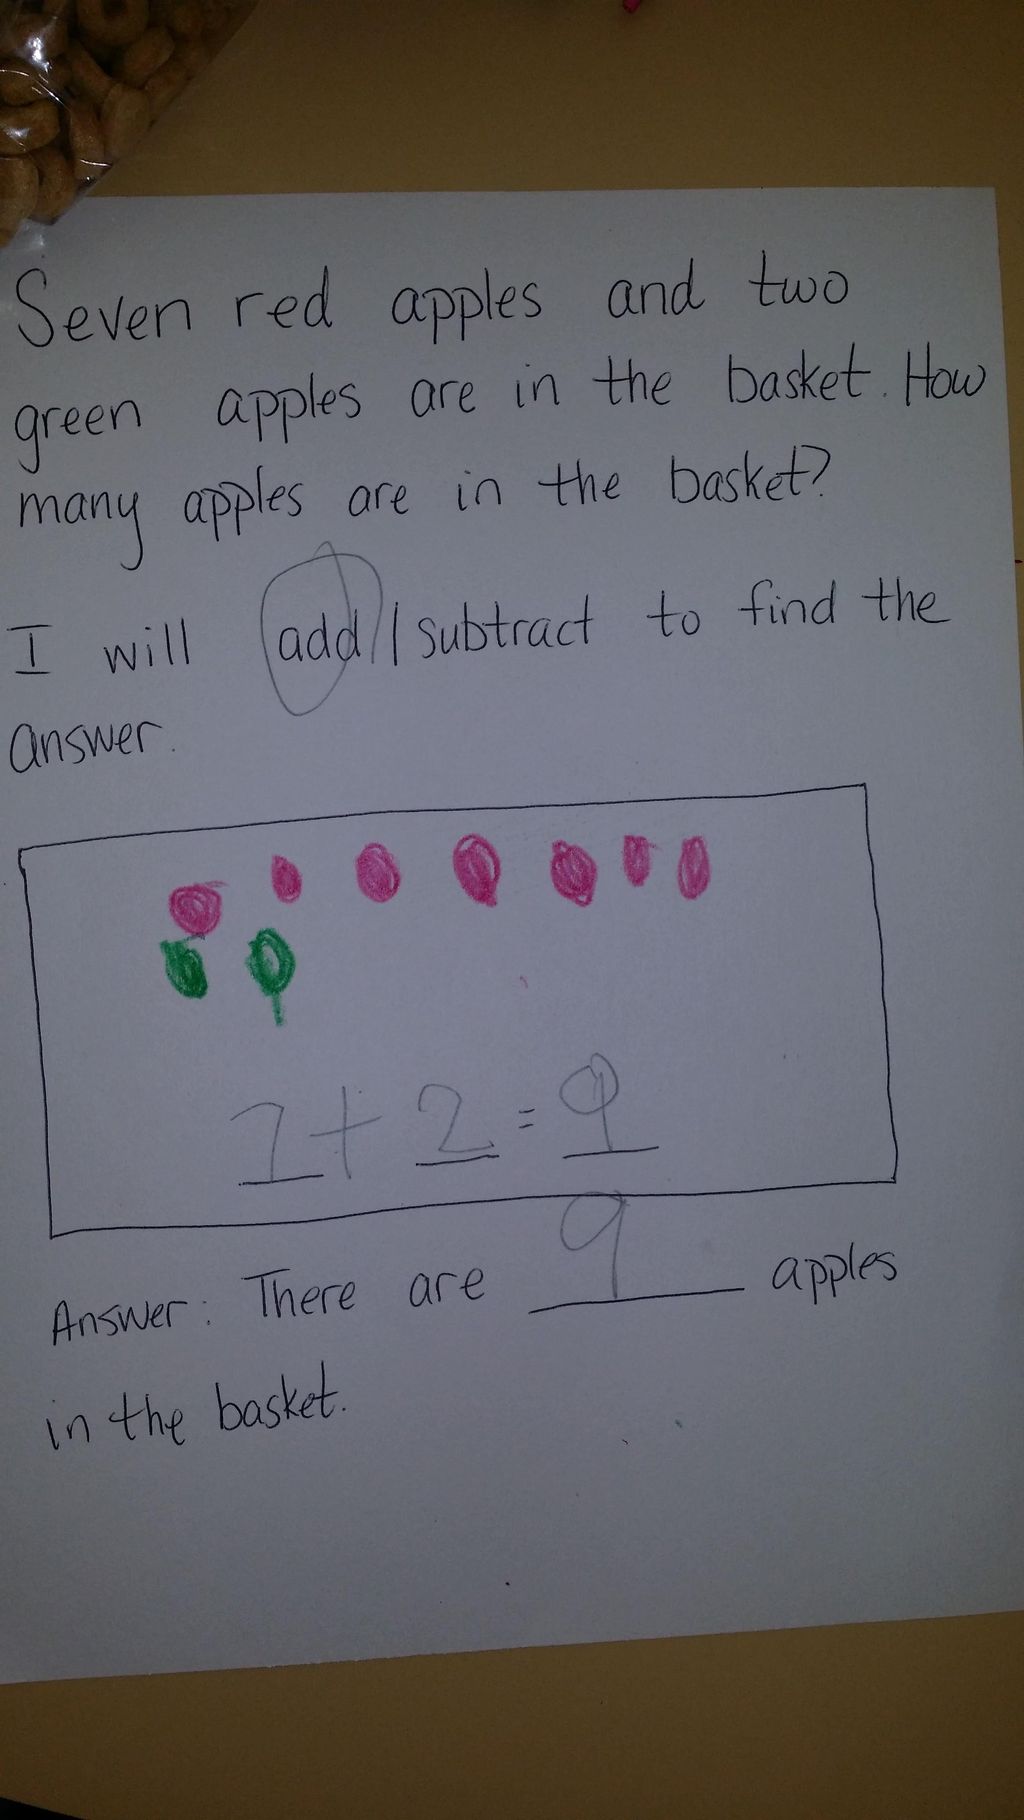 Seven red apples and two
green apples are in the basket. How
many apples are in the basket?
I will add / subtract to find the
answer.
7 + 2 = 9
Answer: There are 9 apples
in the basket.